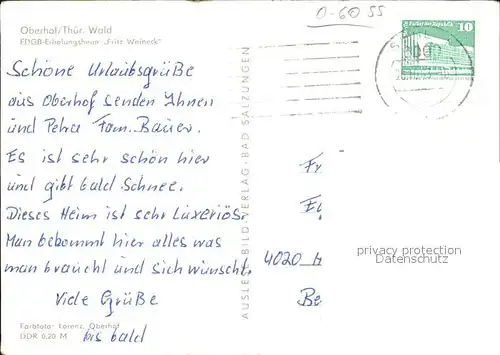 0-60 55
Oberhof/Thür. Wald
FDGB-Erholungsheim „Fritz Weineck"
10
Schöne Urlaubsgrüße
aus Oberhof senden Ihnen
und Petra Fam. Bauer.
Es ist sehr schön hier
und gibt bald Schnee.
Dieses Heim ist sehr Luxeriös.
Man bekommt hier alles was
man braucht und sich wünscht.
Viele Grüße
bis bald
Farbfoto: Lorenz, Oberhof
DDR 0,20 M
BILD-VERLAG · BAD SALZUNGEN
Fr
4020
Be
privacy protection
Datenschutz